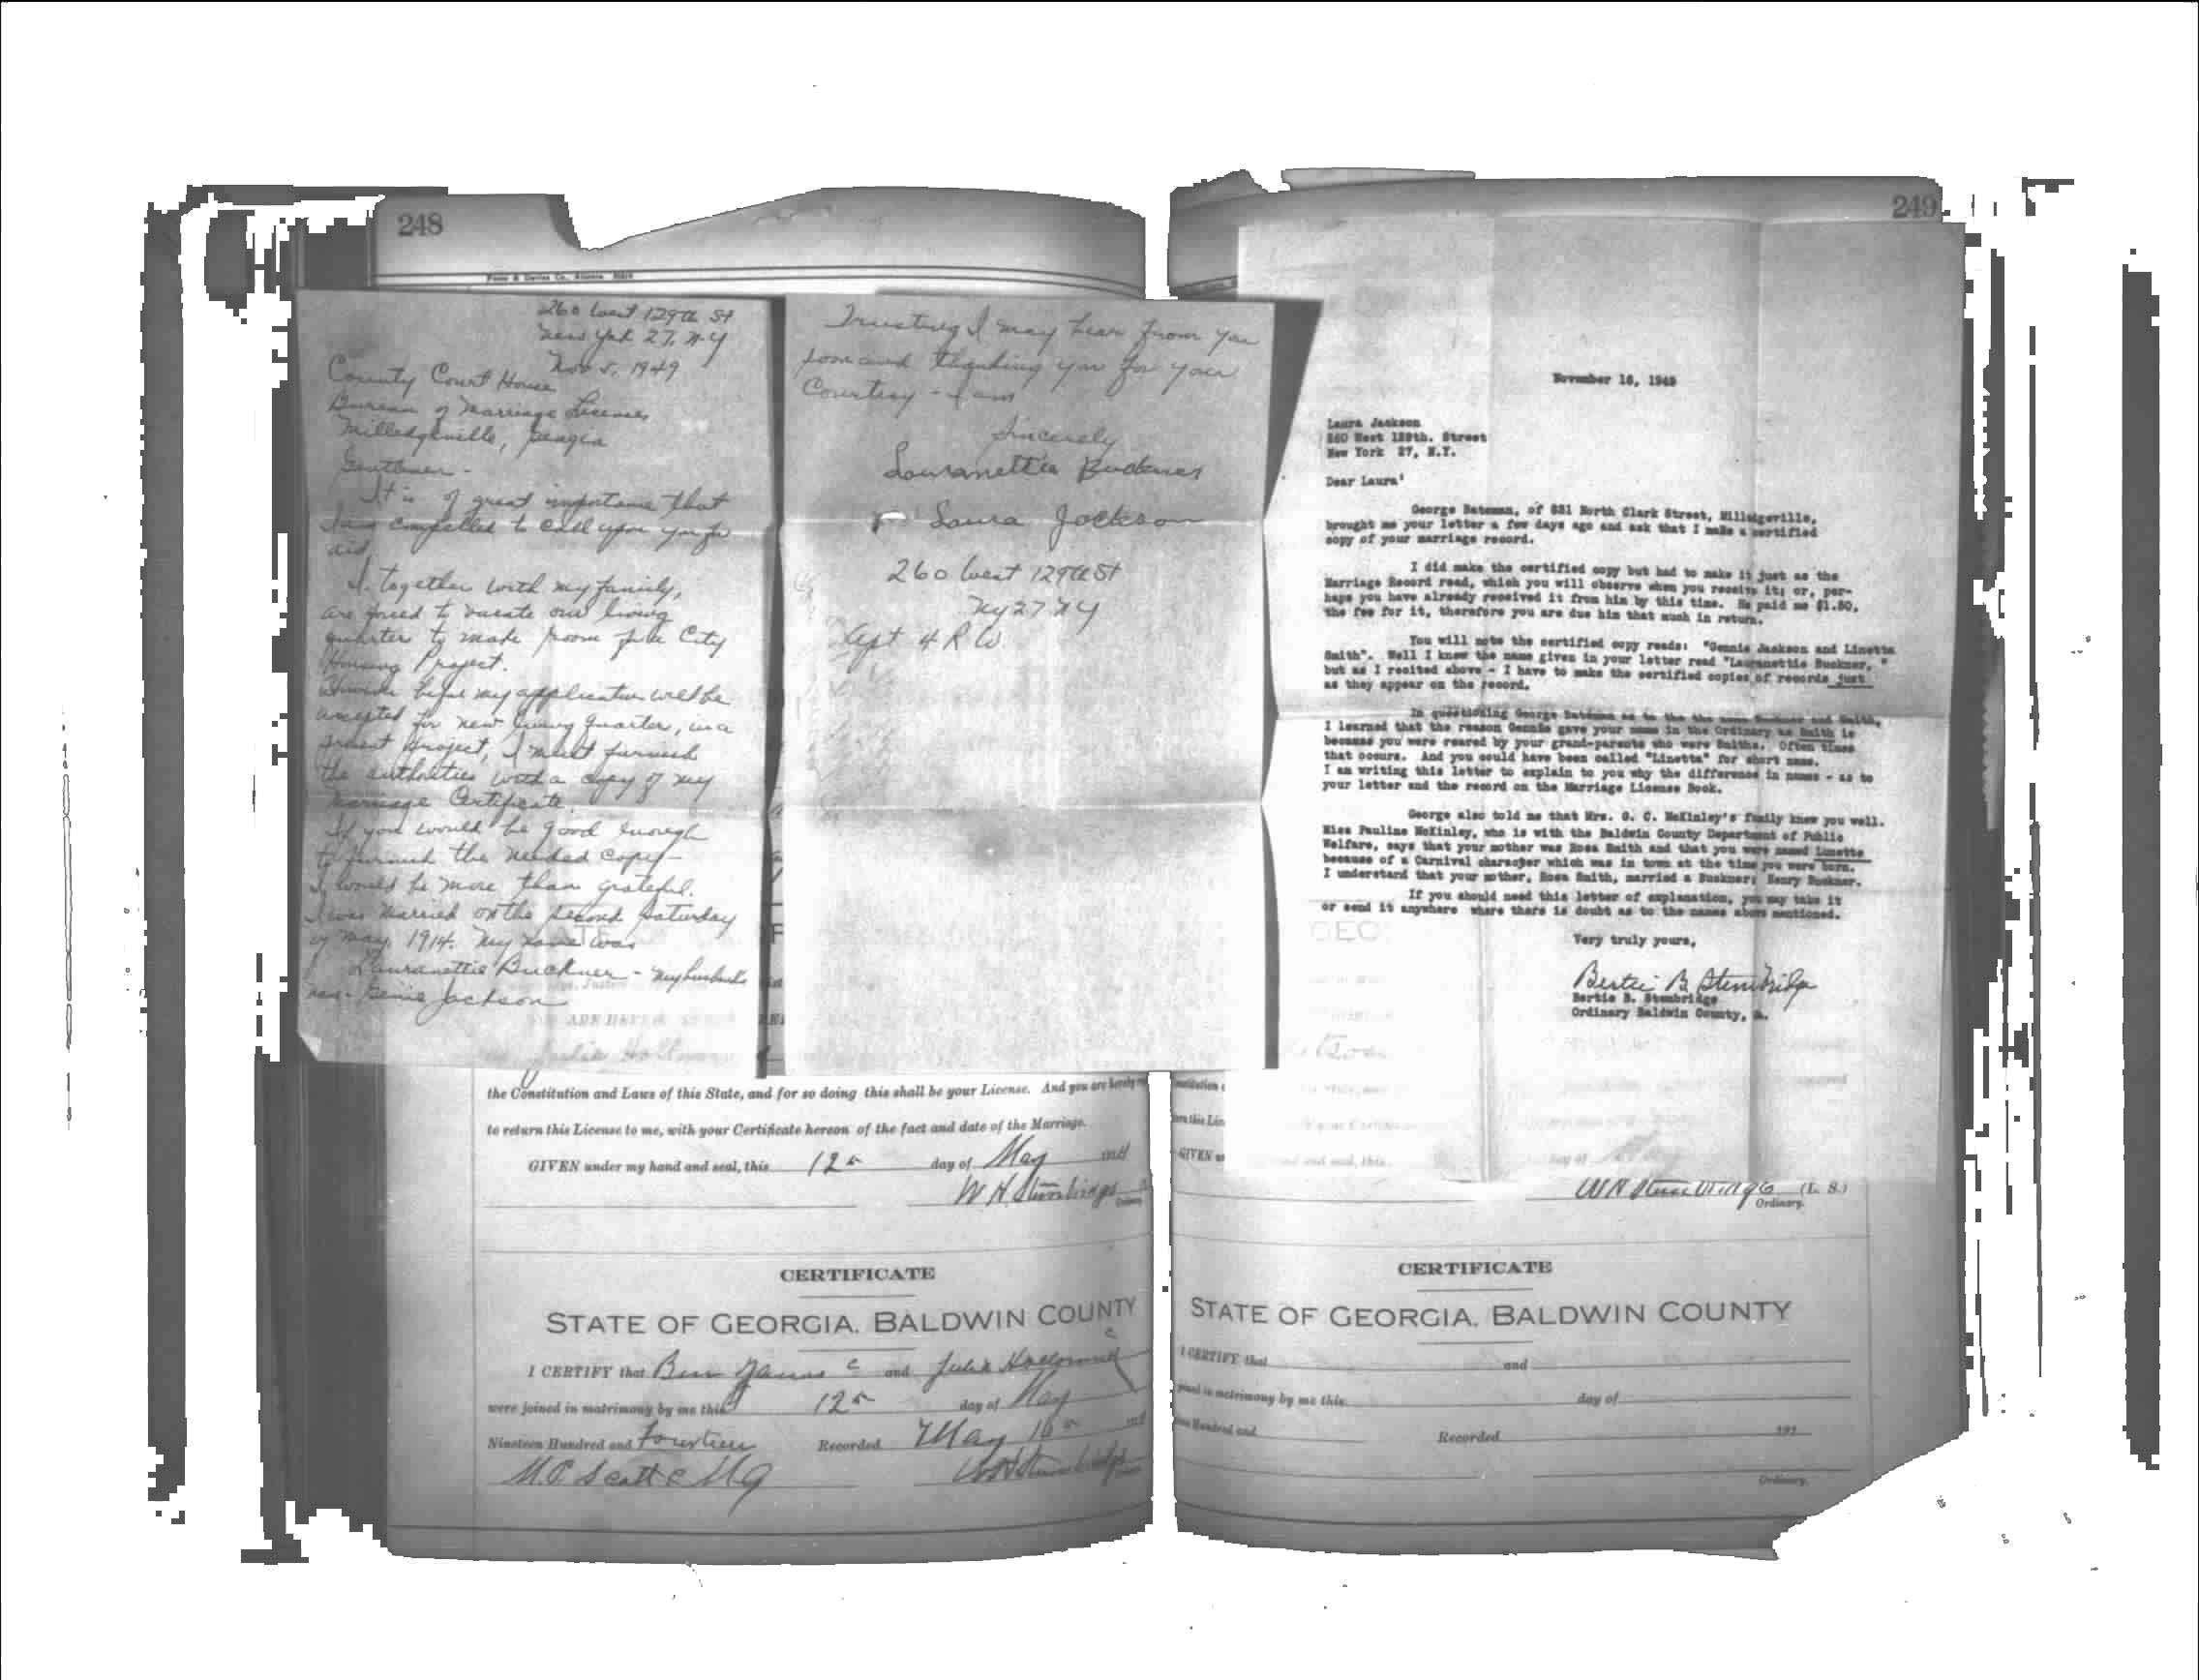 248
Foote & Davies Co., Atlanta
260 West 129th St
New York 27, N.Y
Nov 5, 1949
County Court House
Bureau of Marriage Licenses
Milledgeville, Georgia
Gentlemen -
It is of great importance that
I am compelled to call upon you for
aid.
I, together with my family,
are forced to vacate our living
quarter to made room for a City
Housing Project.
However before my application will be
accepted for new living quarter, in a
project, I must furnish
the authorities with a copy of my
Marriage Certificate.
If you would be good enough
to furnish the needed copy -
I would be more than grateful.
I was married on the second Saturday
of May, 1914. My name was
Lauranettie Buckner - my husband's
was - Genie Jackson
Trusting I may hear from you
soon and thanking you for your
Courtesy - I am
Sincerely
Louranettie Buckner
Laura Jackson
260 West 129th St
NY 27 NY
Apt 4 R W
the Constitution and Laws of this State, and for so doing this shall be your License. And you are hereby
to return this License to me, with your Certificate hereon of the fact and date of the Marriage.
GIVEN under my hand and seal, this 12th day of May
W H Stembridge
CERTIFICATE
STATE OF GEORGIA, BALDWIN COUNTY
I CERTIFY that Ben James c and Julia
were joined in matrimony by me this 12th day of May
Nineteen Hundred and Fourteen Recorded May 16th
M.P. Scott c MG W H Stembridge
249
November 16, 1949
Laura Jackson
260 West 129th. Street
New York 27, N.Y.
Dear Laura'
George Bateman, of 831 North Clark Street, Milledgeville,
brought me your letter a few days ago and ask that I make a certified
copy of your marriage record.
I did make the certified copy but had to make it just as the
Marriage Record read, which you will observe when you receive it; or, per-
haps you have already received it from him by this time. He paid me $1.50,
the fee for it, therefore you are due him that much in return.
You will note the certified copy reads: "Gennie Jackson and Linetta
Smith". Well I know the name given in your letter read "Lauranettie Buckner, "
but as I recited above - I have to make the certified copies of records just
as they appear on the record.
In questioning George Bateman as to the the name Buckner and Smith,
I learned that the reason Gennie gave your name in the Ordinary as Smith is
because you were reared by your grand-parents who were Smiths. Often times
that occurs. And you could have been called "Linetta" for short name.
I am writing this letter to explain to you why the difference in names - as to
your letter and the record on the Marriage License Book.
George also told me that Mrs. O. C. McKinley's family knew you well.
Miss Pauline McKinley, who is with the Baldwin County Department of Public
Welfare, says that your mother was Rosa Smith and that you were named Linette
because of a Carnival character which was in town at the time you were born.
I understand that your mother, Rosa Smith, married a Buckner; Henry Buckner.
If you should need this letter of explanation, you may take it
or send it anywhere where there is doubt as to the names above mentioned.
Very truly yours,
Bertie B. Stembridge
Bertie B. Stembridge
Ordinary Baldwin County, Ga.
W H Stembridge (L. S.)
Ordinary.
CERTIFICATE
STATE OF GEORGIA, BALDWIN COUNTY
I CERTIFY that and
joined in matrimony by me this day of
Hundred and Recorded 191
Ordinary.